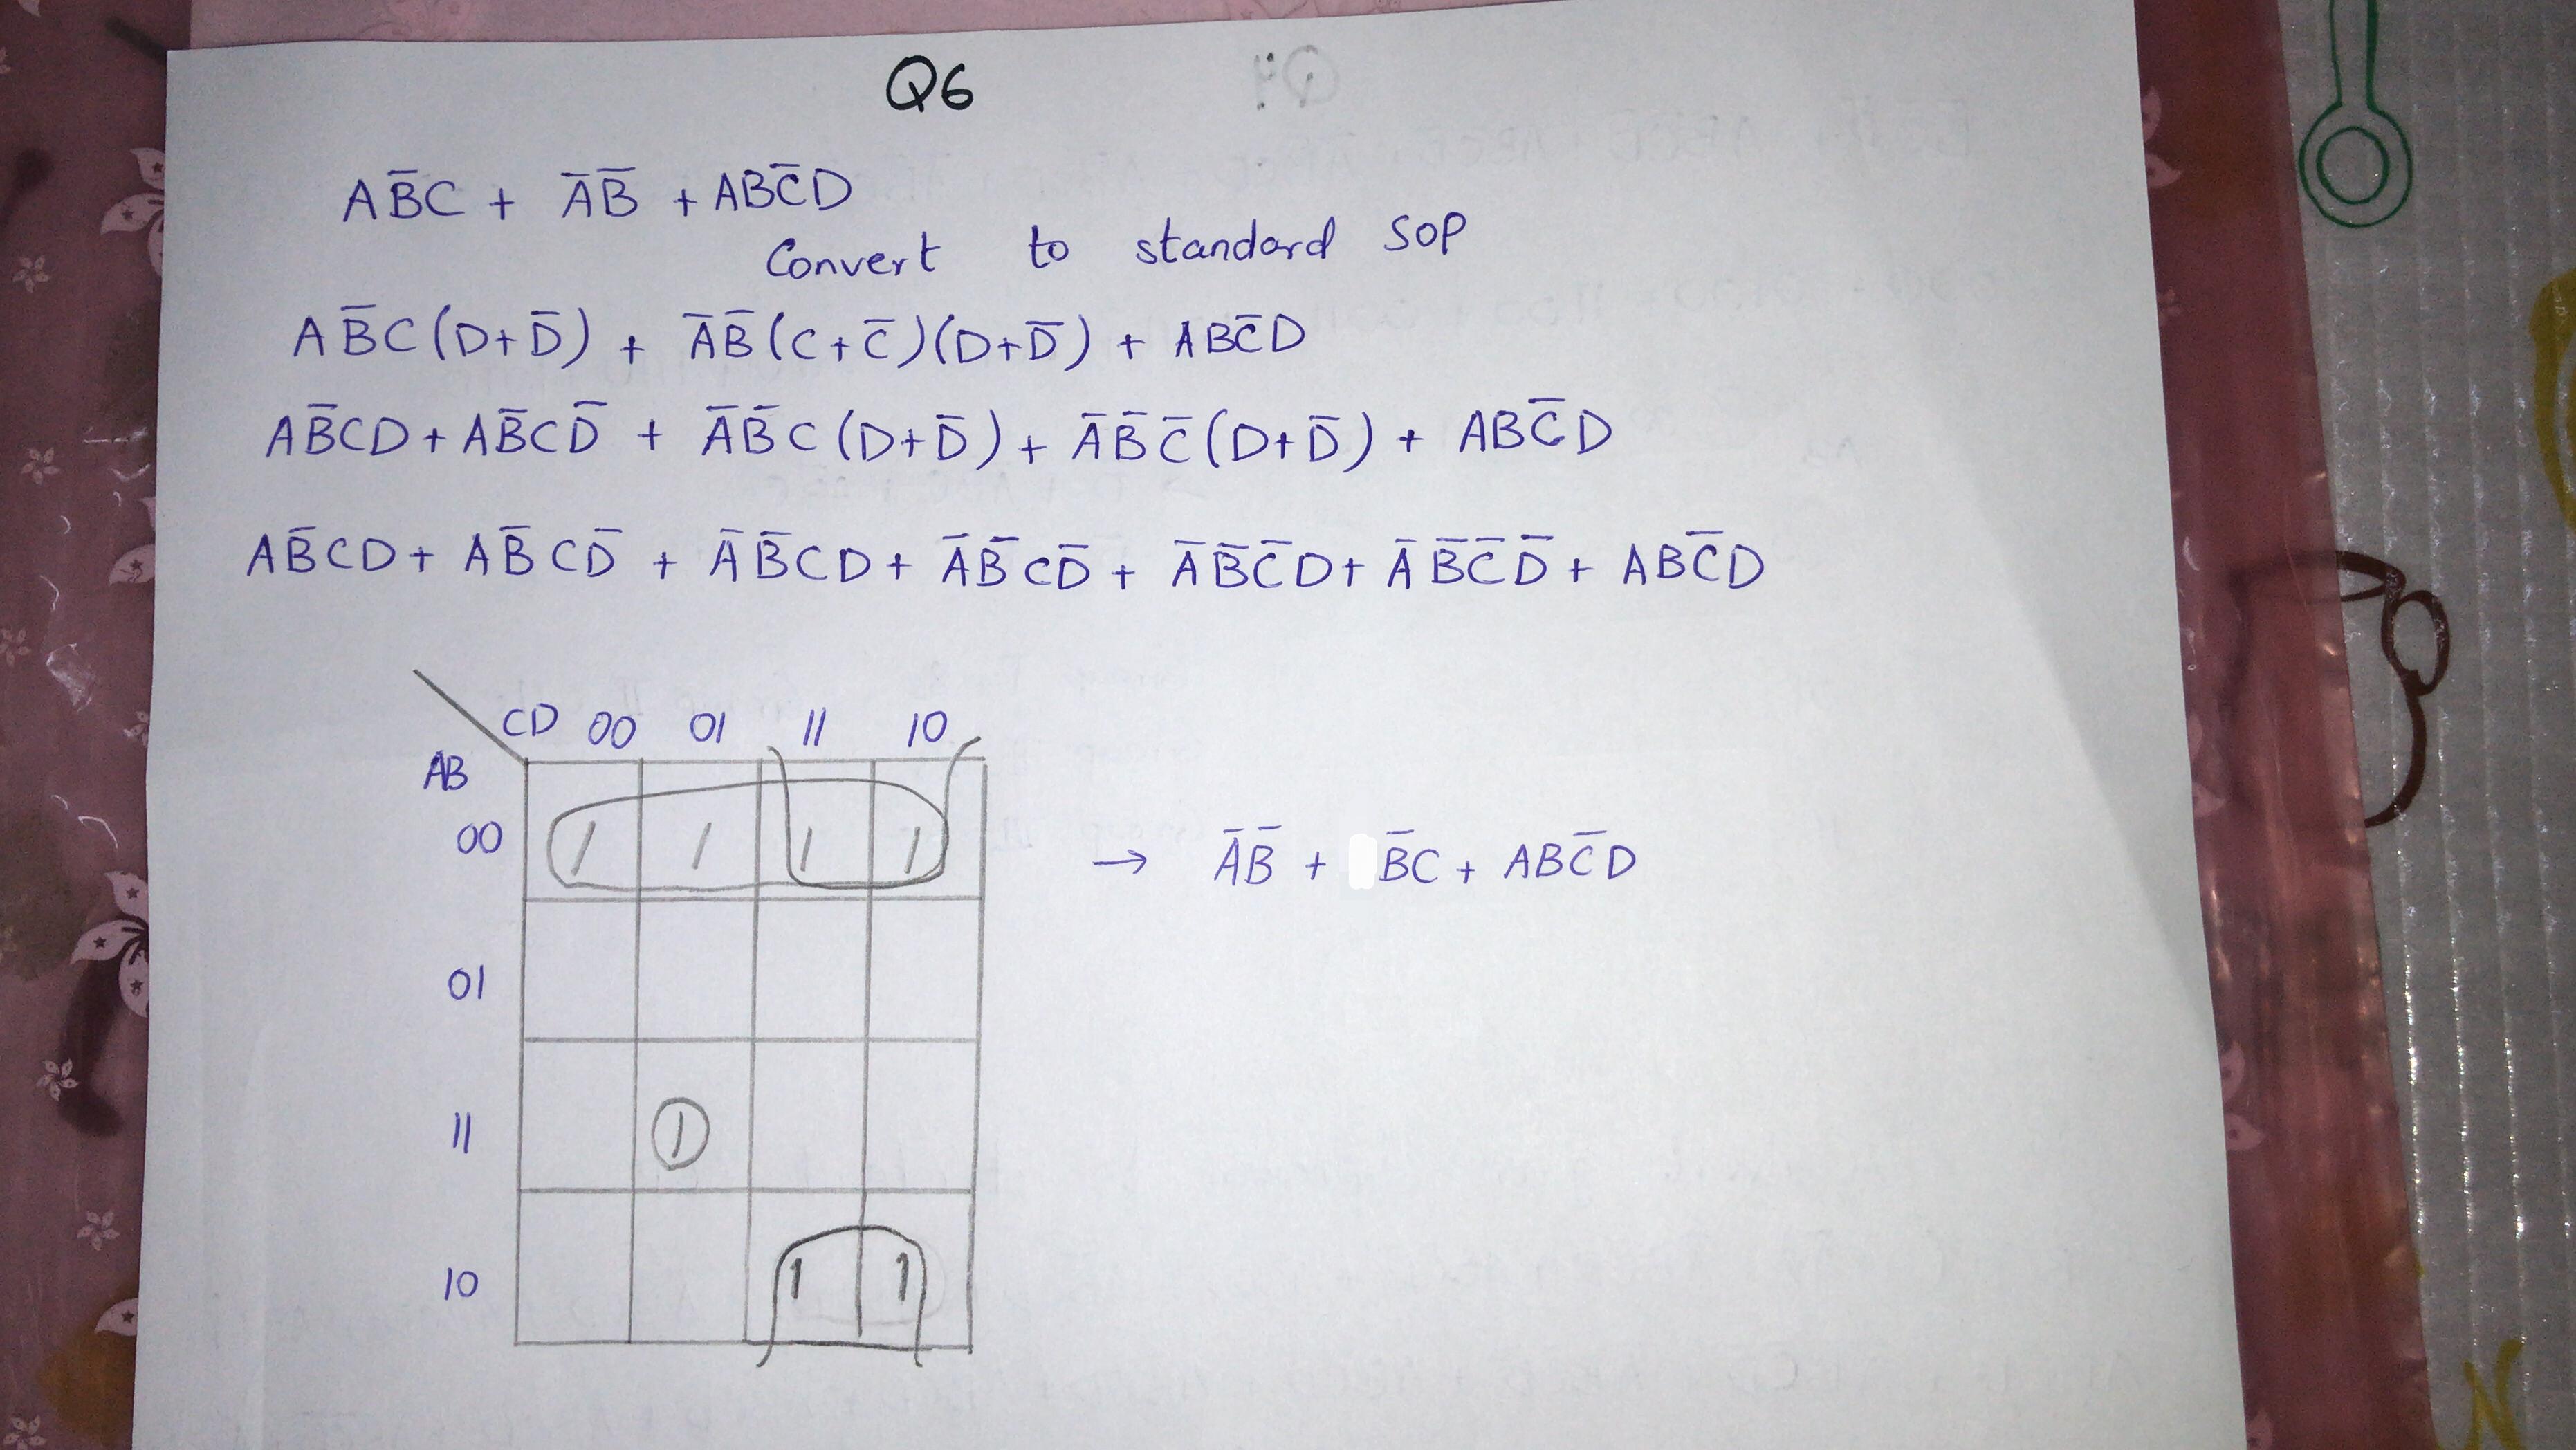 Q6
AB̅C + A̅B̅ + ABC̅D
Convert to standard SOP
AB̅C(D+D̅) + A̅B̅(C+C̅)(D+D̅) + ABC̅D
AB̅CD + AB̅CD̅ + A̅B̅C(D+D̅) + A̅B̅C̅(D+D̅) + ABC̅D
AB̅CD + AB̅CD̅ + A̅B̅CD + A̅B̅CD̅ + A̅B̅C̅D + A̅B̅C̅D̅ + ABC̅D
CD 00 01 11 10
AB
00 1 1 1 1 → A̅B̅ + B̅C + ABC̅D
01
11 1
10 1 1